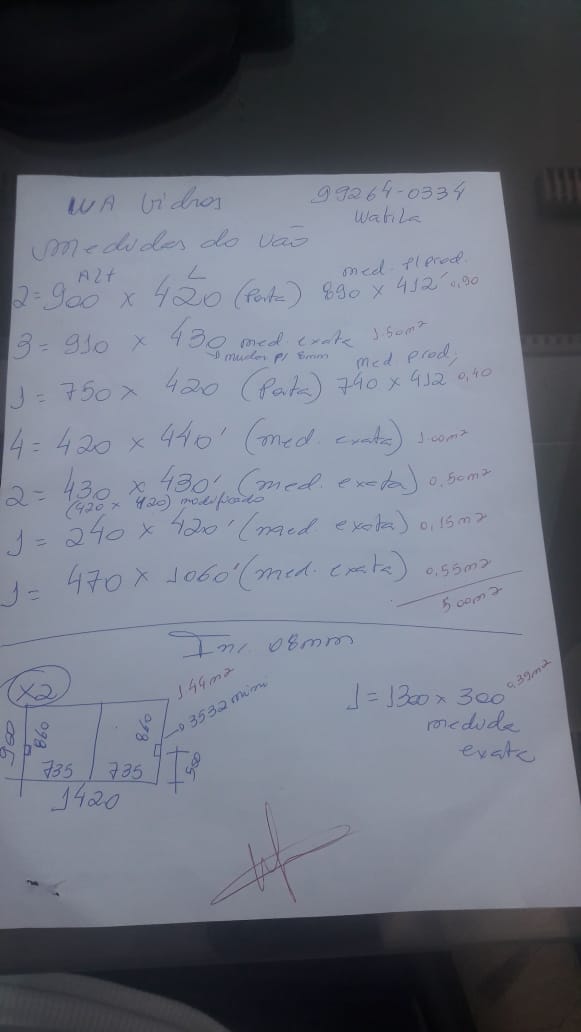 WA Vidros 99264-0334
Watila
Medidas do vão
Alt L med. p/ prod.
2 = 900 x 420 (Porta) 890 x 412' 0,90
3 = 910 x 430 med. exata 1.50m²
mudar p/ 8mm
med prod,
1 = 750 x 420 (Porta) 740 x 412 0,40
4 = 420 x 440' (med. exata) 1.00m²
2 = 430 x 430' (med. exata) 0,50m²
(420 x 420) modificado
1 = 240 x 420' (med exata) 0,15m²
1 = 470 x 1060' (med. exata) 0,55m²
5.00m²
Inc. 08mm
X2
1.44m²
3532 mini
900 860 860
735 735 500
1420
1 = 1300 x 300 0,39m²
medida
exata